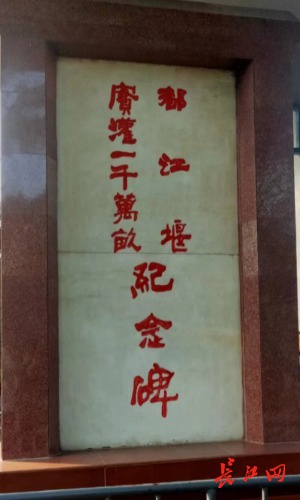 都江堰
實灌一千萬畝
紀念碑
长江网